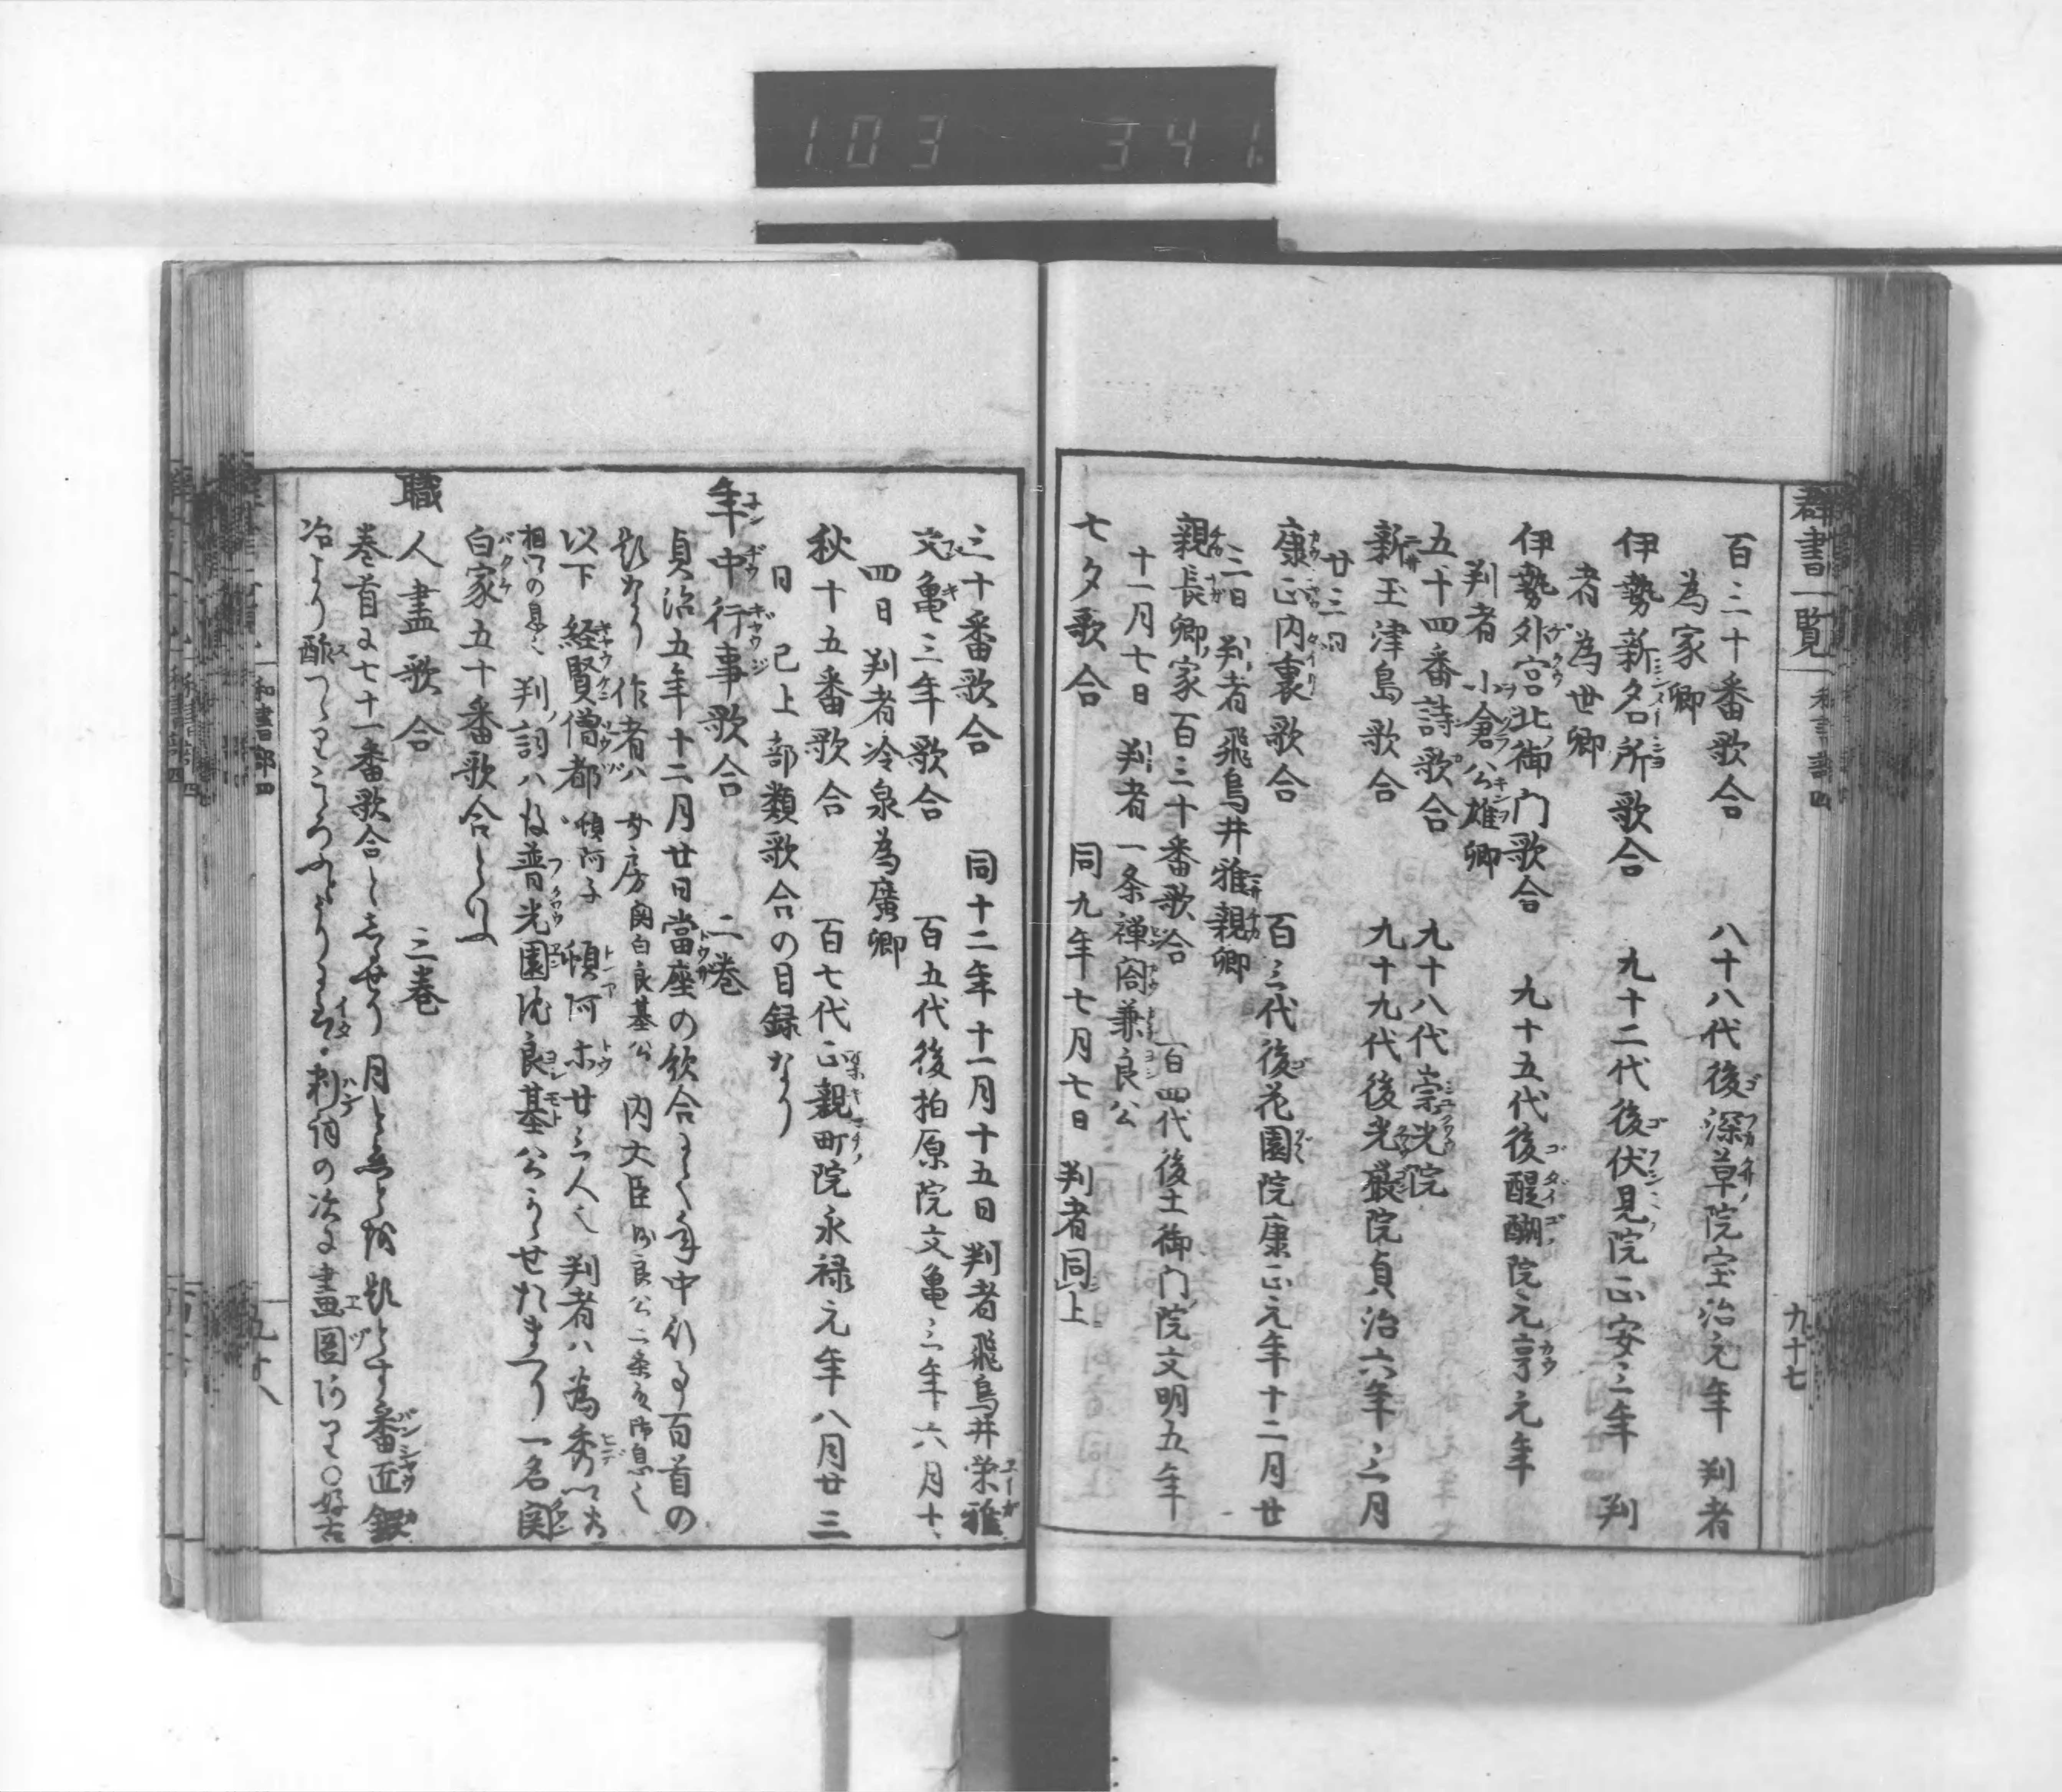 103 341
群書一覧 和書部四 九十七
百三十番歌合 八十八代後深草院宝治元年 判者
為家卿
伊勢新名所歌合 九十二代後伏見院正安三年 判
者 為世卿
伊勢外宮北御門歌合 九十五代後醍醐院元亨元年
判者 小倉公雄卿
五十四番詩歌合 九十八代崇光院
新玉津島歌合 九十九代後光厳院貞治六年三月
廿三日
康正内裏歌合 百三代後花園院康正元年十二月廿
二日 判者飛鳥井雅親卿
親長卿家百三十番歌合 百四代後土御門院文明五年
十一月七日 判者 一条禅閤兼良公
七夕歌合 同九年七月七日 判者同上
三十番歌合 同十二年十一月十五日 判者飛鳥井栄雅
文亀三年歌合 百五代後柏原院文亀三年六月十
四日 判者冷泉為廣卿
秋十五番歌合 百七代正親町院永禄元年八月廿三
日 已上部類歌合の目録なり
年中行事歌合 二巻
貞治五年十二月廿日當座の歌合にて年中行事百首の
題なり 作者ハ 女房 関白良基公 内大臣 師良公二条良基息也
以下 経賢僧都 頓阿子 頓阿 等廿三人也 判者ハ為秀
判詞ハ 普光園 良基公 かゝせたまへり 一名関
白家五十番歌合といふ
職人盡歌合 三巻
巻首に七十一番歌合としるせり 月と恋とを題とす 番匠鍛
冶より酢つくり こゝろふとうりまて 判詞の次に畫圖あり ○好古
和書部四 九十八